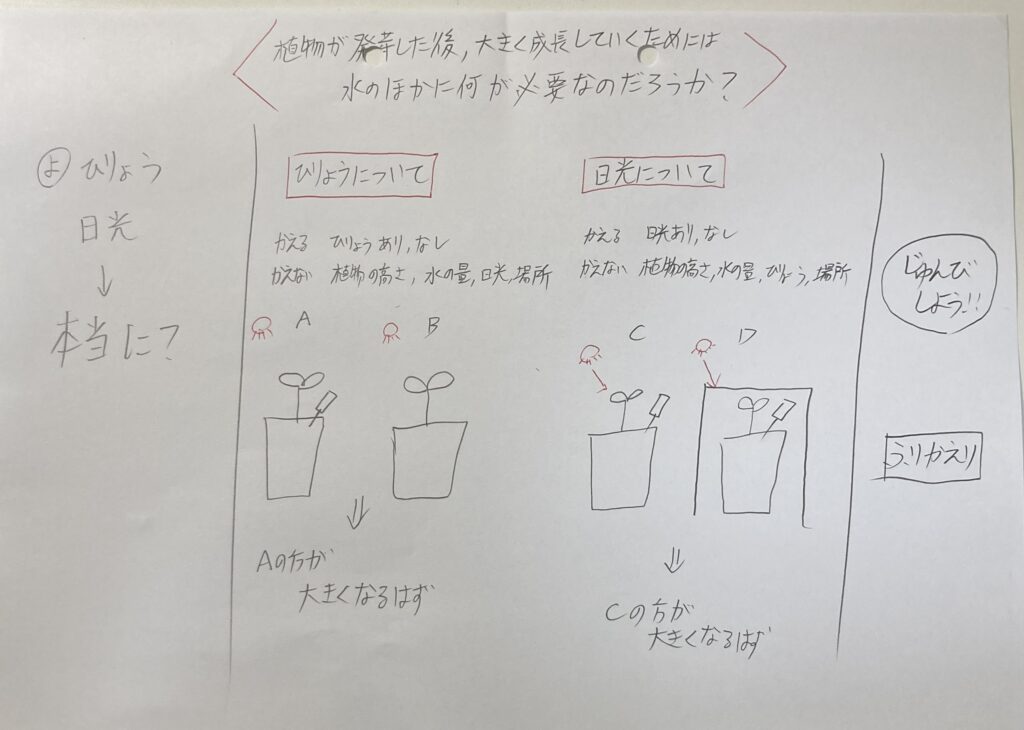 植物が発芽した後,大きく成長していくためには
水のほかに何が必要なのだろうか?
よ ひりょう
日光
↓
本当に?
ひりょうについて
かえる ひりょうあり,なし
かえない 植物の高さ,水の量,日光,場所
A B
Aの方が
大きくなるはず
日光について
かえる 日光あり,なし
かえない 植物の高さ,水の量,ひりょう,場所
C D
Cの方が
大きくなるはず
じゅんび
しよう!!
ふりかえり